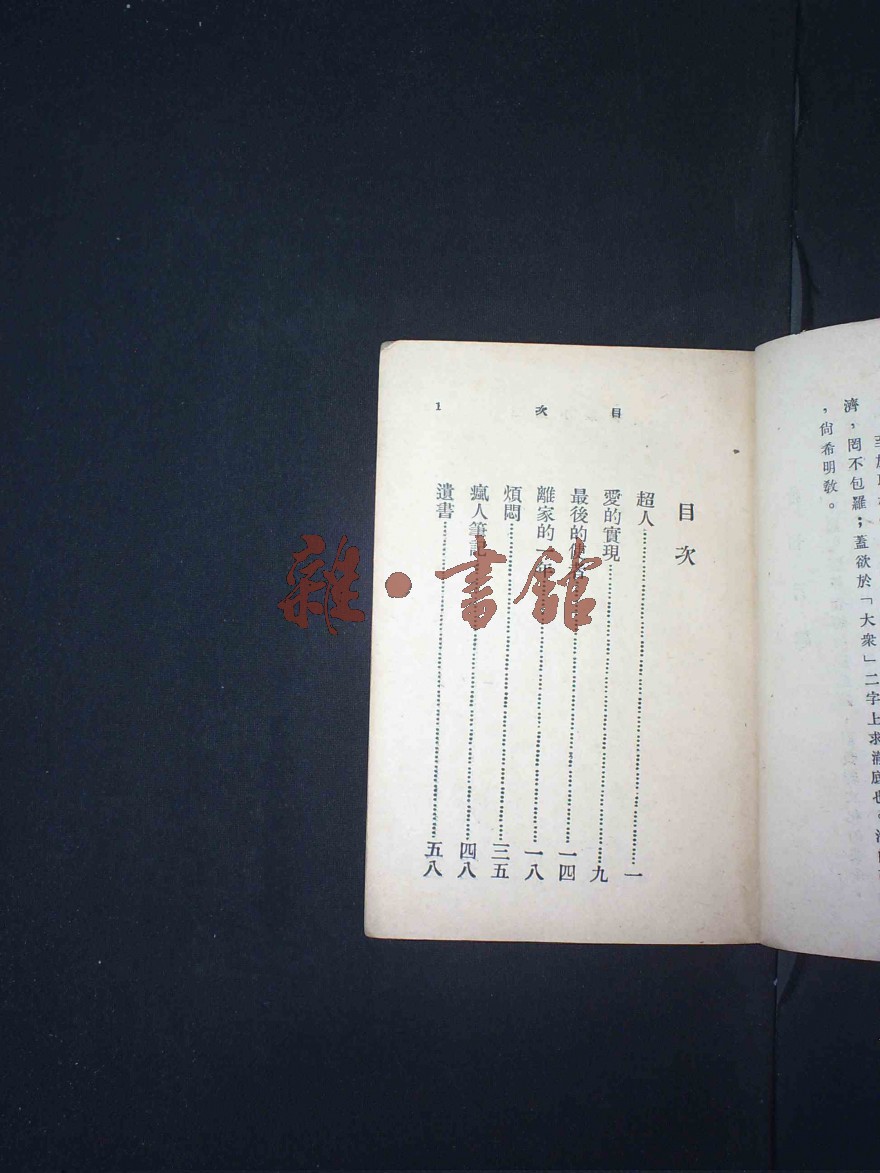 濟，罔不包羅；蓋欲於「大衆」二字上求
，尙希明敎。
目次
1
目次
超人 一
愛的實現 九
最後的使者 一四
離家的一年 一八
煩悶 三五
瘋人筆記 四八
遺書 五八
雜·書館